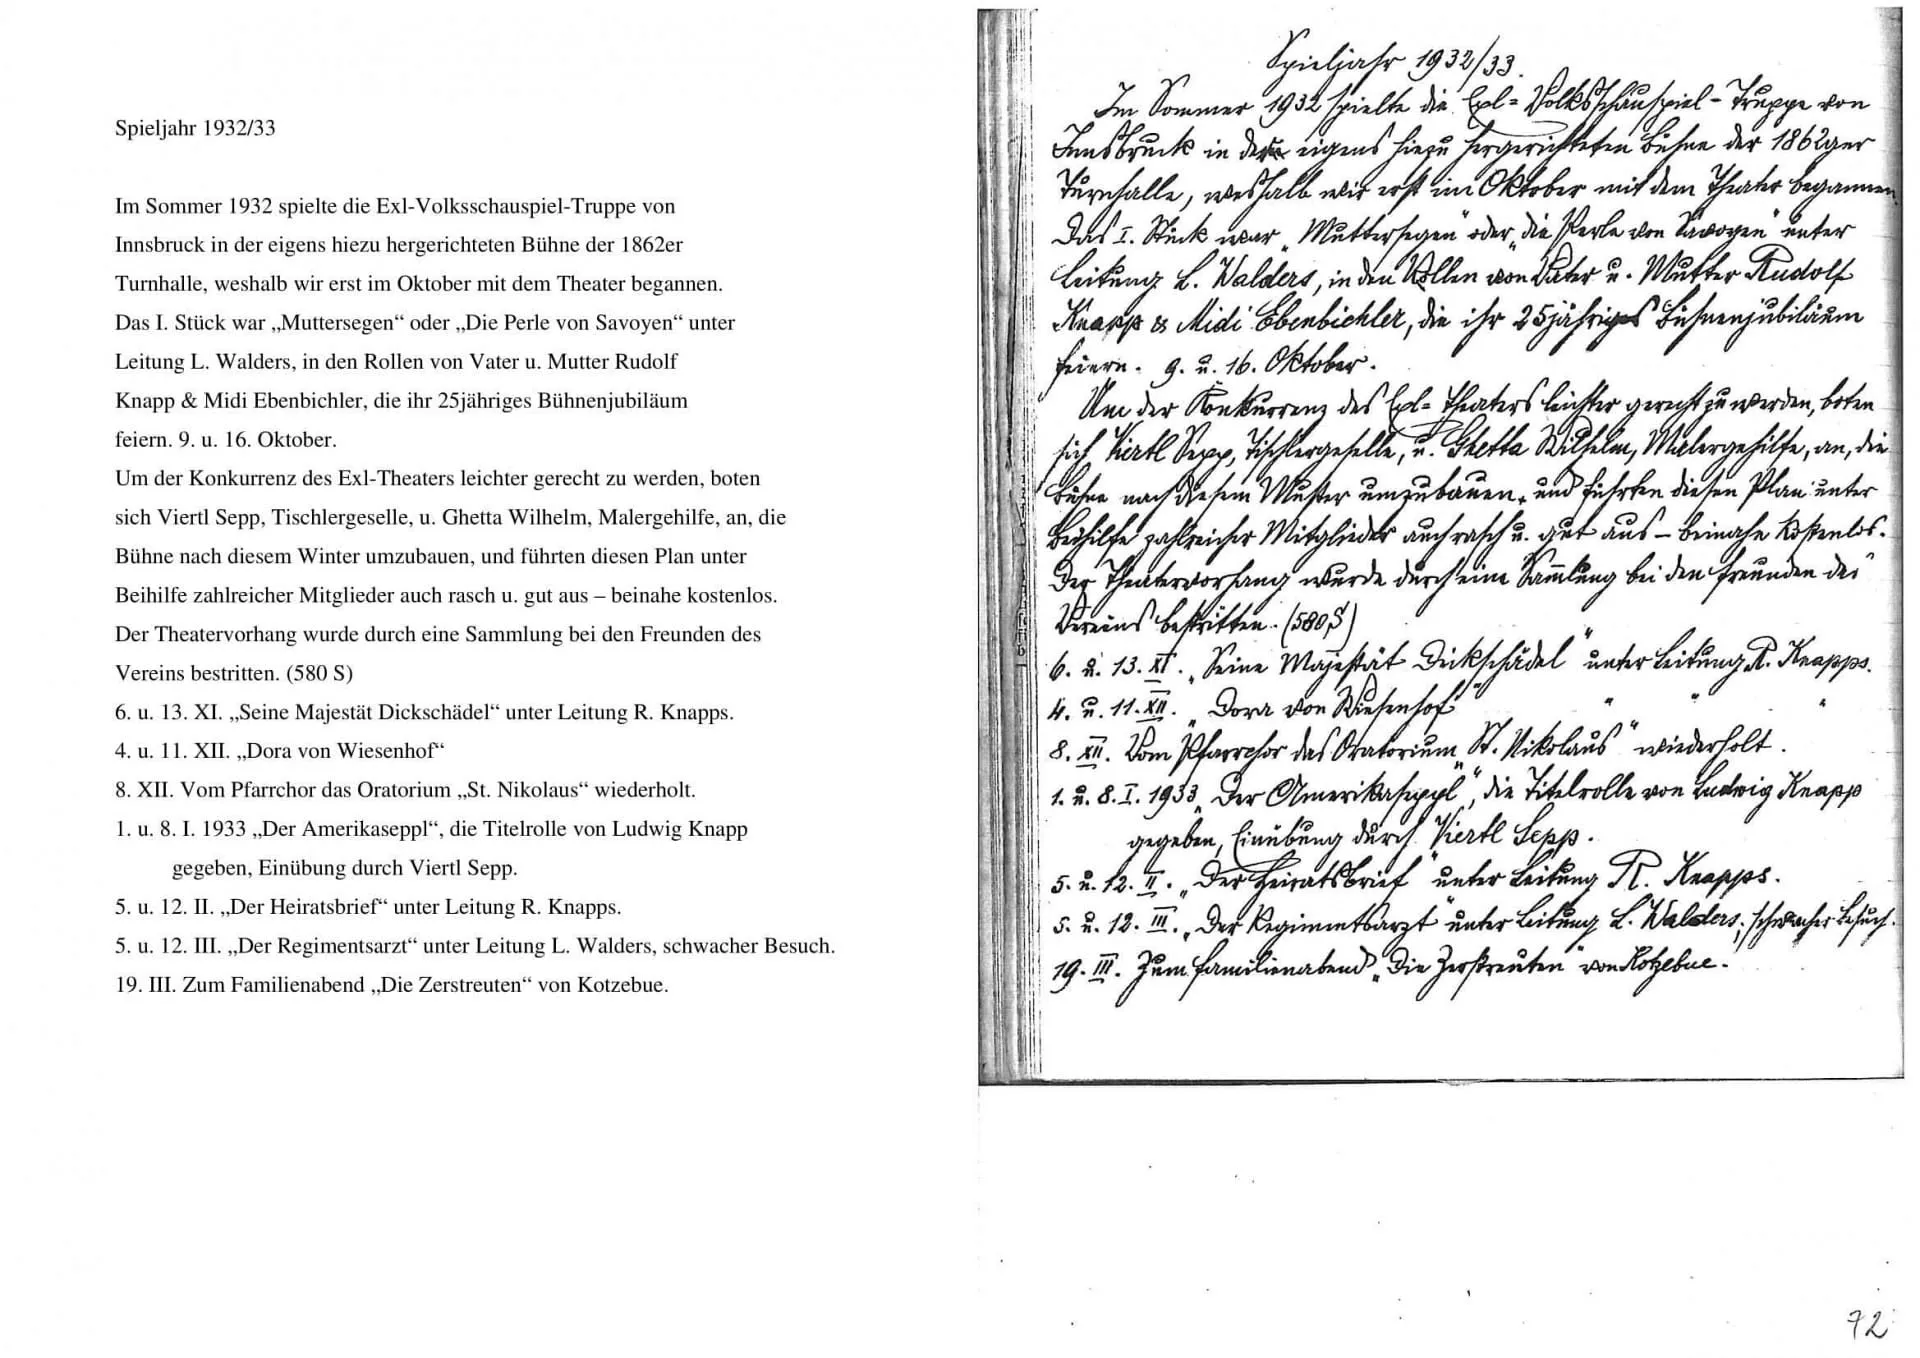 Spieljahr 1932/33
Im Sommer 1932 spielte die Exl-Volksschauspiel-Truppe von
Innsbruck in der eigens hiezu hergerichteten Bühne der 1862er
Turnhalle, weshalb wir erst im Oktober mit dem Theater begannen.
Das I. Stück war „Muttersegen“ oder „Die Perle von Savoyen“ unter
Leitung L. Walders, in den Rollen von Vater u. Mutter Rudolf
Knapp & Midi Ebenbichler, die ihr 25jähriges Bühnenjubiläum
feiern. 9. u. 16. Oktober.
Um der Konkurrenz des Exl-Theaters leichter gerecht zu werden, boten
sich Viertl Sepp, Tischlergeselle, u. Ghetta Wilhelm, Malergehilfe, an, die
Bühne nach diesem Winter umzubauen, und führten diesen Plan unter
Beihilfe zahlreicher Mitglieder auch rasch u. gut aus – beinahe kostenlos.
Der Theatervorhang wurde durch eine Sammlung bei den Freunden des
Vereins bestritten. (580 S)
6. u. 13. XI. „Seine Majestät Dickschädel“ unter Leitung R. Knapps.
4. u. 11. XII. „Dora von Wiesenhof“
8. XII. Vom Pfarrchor das Oratorium „St. Nikolaus“ wiederholt.
1. u. 8. I. 1933 „Der Amerikaseppl“, die Titelrolle von Ludwig Knapp
gegeben, Einübung durch Viertl Sepp.
5. u. 12. II. „Der Heiratsbrief“ unter Leitung R. Knapps.
5. u. 12. III. „Der Regimentsarzt“ unter Leitung L. Walders, schwacher Besuch.
19. III. Zum Familienabend „Die Zerstreuten“ von Kotzebue.
Spieljahr 1932/33.
Im Sommer 1932 spielte die Exl=Volksschauspiel-Truppe von
Innsbruck in der eigens hiezu hergerichteten Bühne der 1862ger
Turnhalle, weshalb wir erst im Oktober mit dem Theater begannen.
Das I. Stück war „Muttersegen“ oder „die Perle von Savoyen“ unter
Leitung L. Walders, in den Rollen von Vater u. Mutter Rudolf
Knapp & Midi Ebenbichler, die ihr 25jähriges Bühnenjubiläum
feiern. 9. u. 16. Oktober.
Um der Konkurrenz des Exl=Theaters leichter gerecht zu werden, boten
sich Viertl Sepp, Tischlergeselle, u. Ghetta Wilhelm, Malergehilfe, an, die
Bühne nach diesem Muster umzubauen, und führten diesen Plan unter
Beihilfe zahlreicher Mitglieder auch rasch u. gut aus – beinahe kostenlos.
Der Theatervorhang wurde durch eine Sammlung bei den Freunden des
Vereins bestritten. (580 S)
6. u. 13. XI. „Seine Majestät Dickschädel“ unter Leitung R. Knapps.
4. u. 11. XII. „Dora von Wiesenhof“ " " "
8. XII. Vom Pfarrchor das Oratorium „St. Nikolaus“ wiederholt.
1. u. 8. I. 1933 „Der Amerikaseppl“, die Titelrolle von Ludwig Knapp
gegeben, Einübung durch Viertl Sepp.
5. u. 12. II. „Der Heiratsbrief“ unter Leitung R. Knapps.
5. u. 12. III. „Der Regimentsarzt“ unter Leitung L. Walders; schwacher Besuch.
19. III. Zum Familienabend „Die Zerstreuten“ von Kotzebue.
72